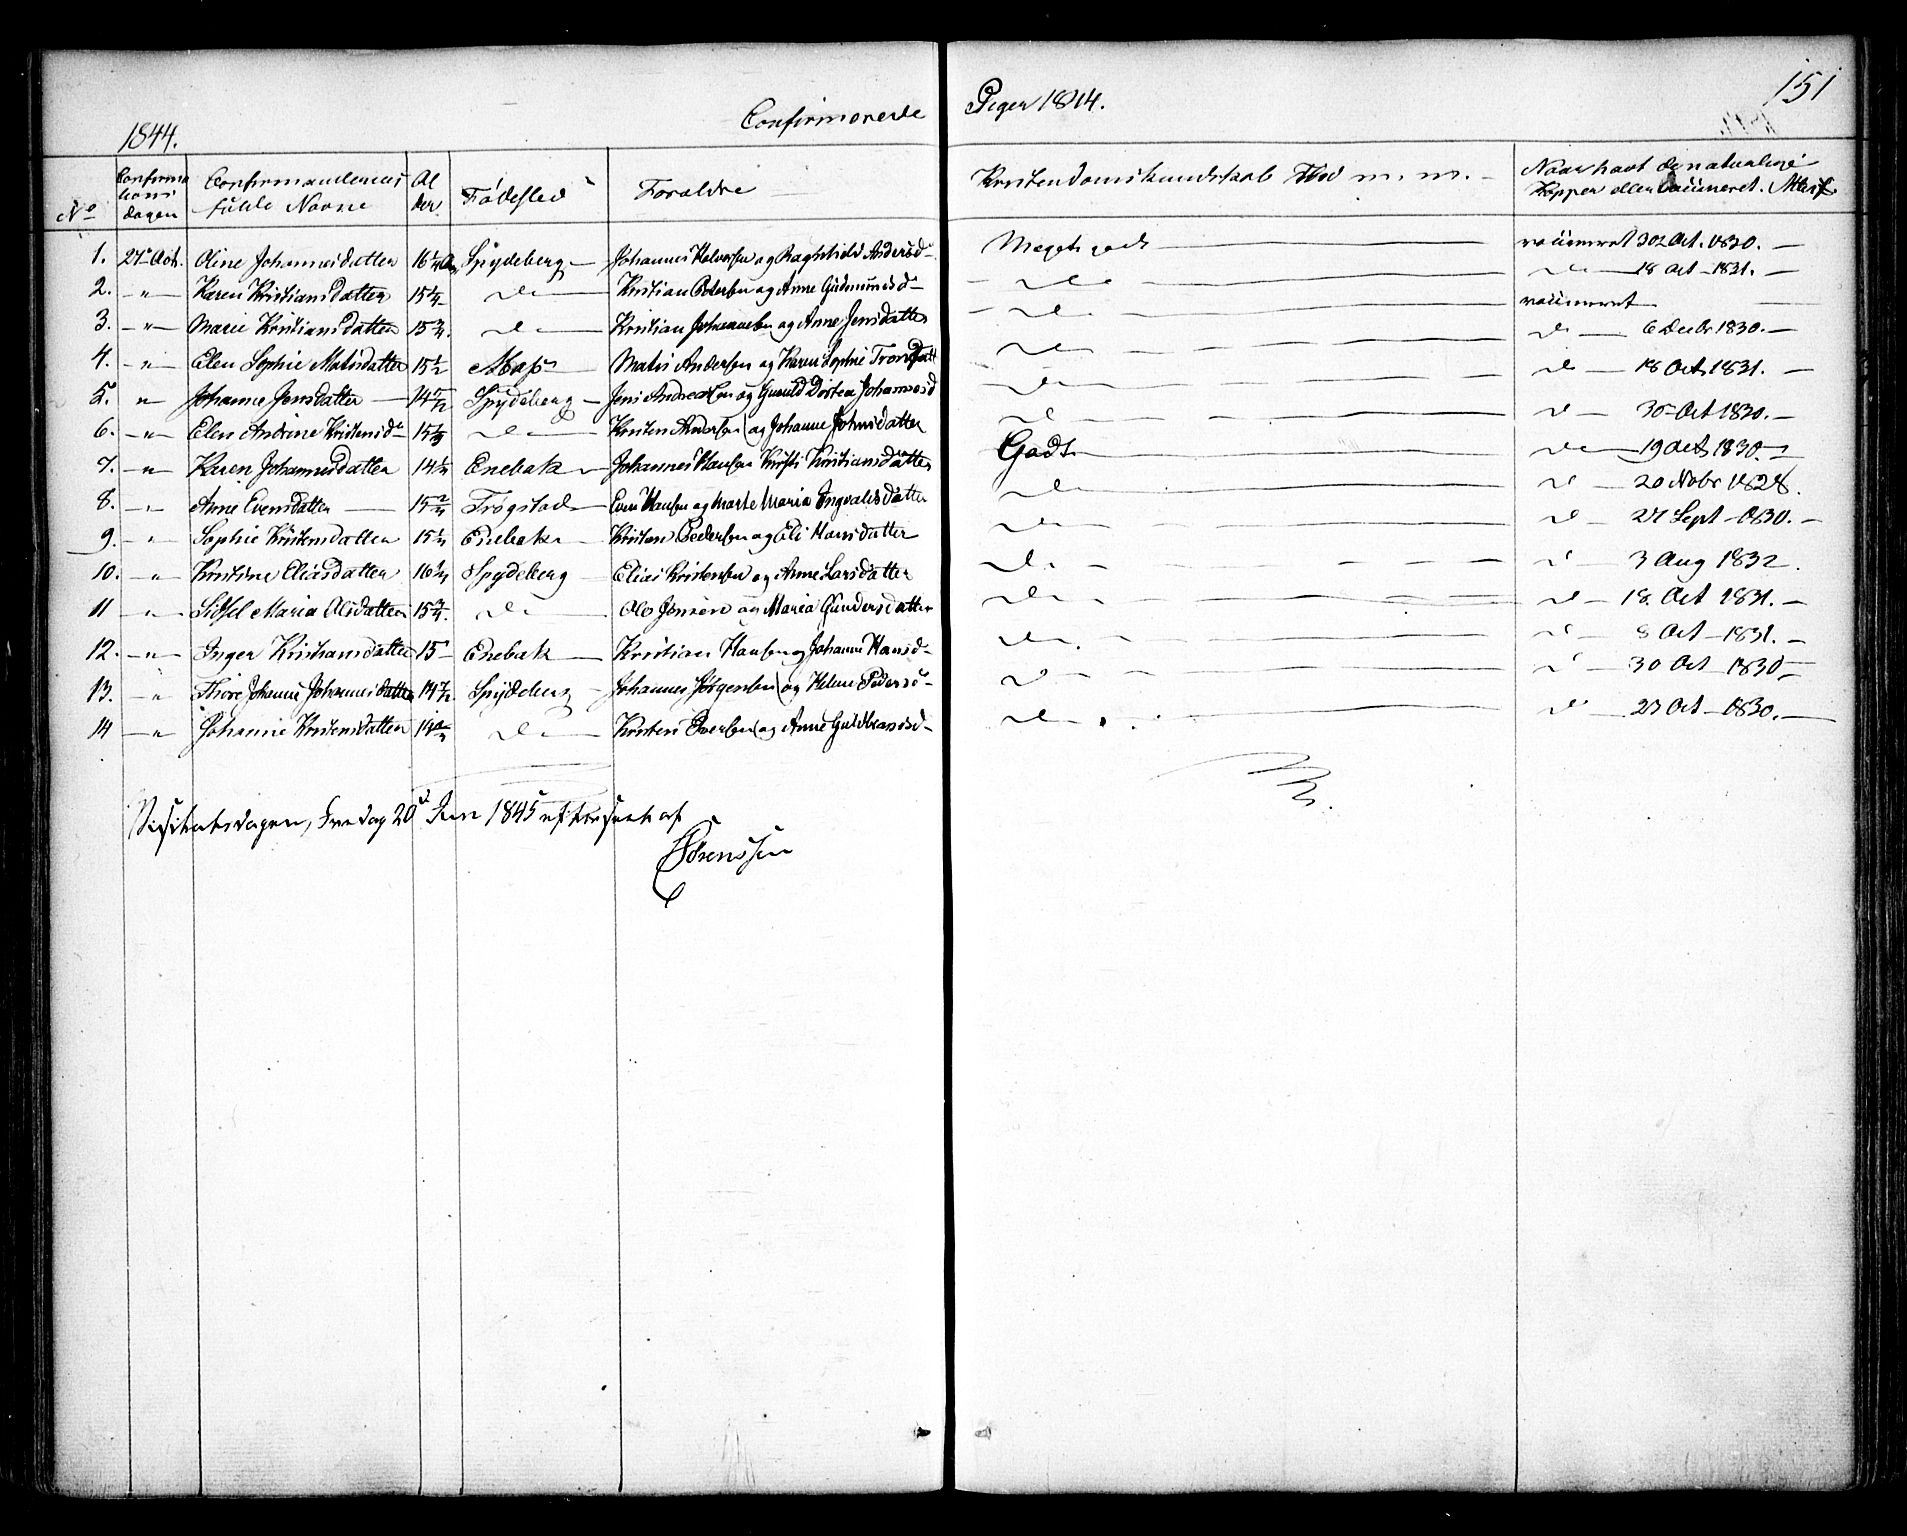 151
1844. Confirmerede Piger 1844.
No Confirmations dagen Confirmandernes fulde Navne Alder Fødested Forældre Kristendomskundskab Flid m. m. Naar havt de naturlige Kopper eller vaccineret. Attest
1. 27de Oct. Oline Johannesdatter 16 1/4 Spydeberg Johannes Halvorsen og Ragnhild Andersd Meget godt vaccineret 30 Oct. 1830.
2. " Karen Kristiansdatter 15 1/4 do Kristian Pedersen og Anne Gudmundsd do do 18 Oct 1831.
3. " Marie Kristiansdatter 15 3/4 do Kristian Johannesen og Anne Jensdatter do vaccineret
4. " Elen Sophie Matisdatter 15 1/2 Moss Matis Andersen og Karen Sophie Tronsdatt do do 6 Decbr 1830.
5. " Johanne Jensdatter 14 Spydeberg Jens Andreassen og Dortea Johannesd do do 18 Oct 1831.
6. " Elen Andrine Kristensd 15 do Kristen Andersen og Johanne Johnsdatter do do 30 Oct 1830.
7. " Karen Johannesdatter 14 Enebak Johannes Hansen Kirsti Kristiansdatter Godt do 19 Oct 1830.
8. " Anne Evensdatter 15 Trøgstad Even Hansen og Marte Maria Ingvaldsdatter do d 20 Novbr 1828.
9. " Sophie Kristensdatter 15 Enebak Kristen Pedersen og Eli Hansdatter do d 27 Sept 1830.
10. " Kristine Eliasdatter 16 Spydeberg Elias Kristensen og Anne Larsdatter do d 3 Aug 1832.
11 " Sissel Maria Olsdatter 15 3/4 do Ole Jensen og Maria Gundersdatter do d 18 Oct 1831.
12. " Inger Kristiansdatter 15 Enebak Kristian Hansen og Johanne Hansd do d 8 Oct 1831.
13. " Thore Johanne Johannesdatter 14 Spydeberg Johannes Jørgensen og Helene Pedersd d d 30 Oct 1830
14 " Johanne Kristensdatter 14 do Kristen Iversen og Anne Guldbrandsd do d 27 Oct 1830.
Visitatsdagen, Fredag 20d Jun 1845 efterseet af
Sørenssen